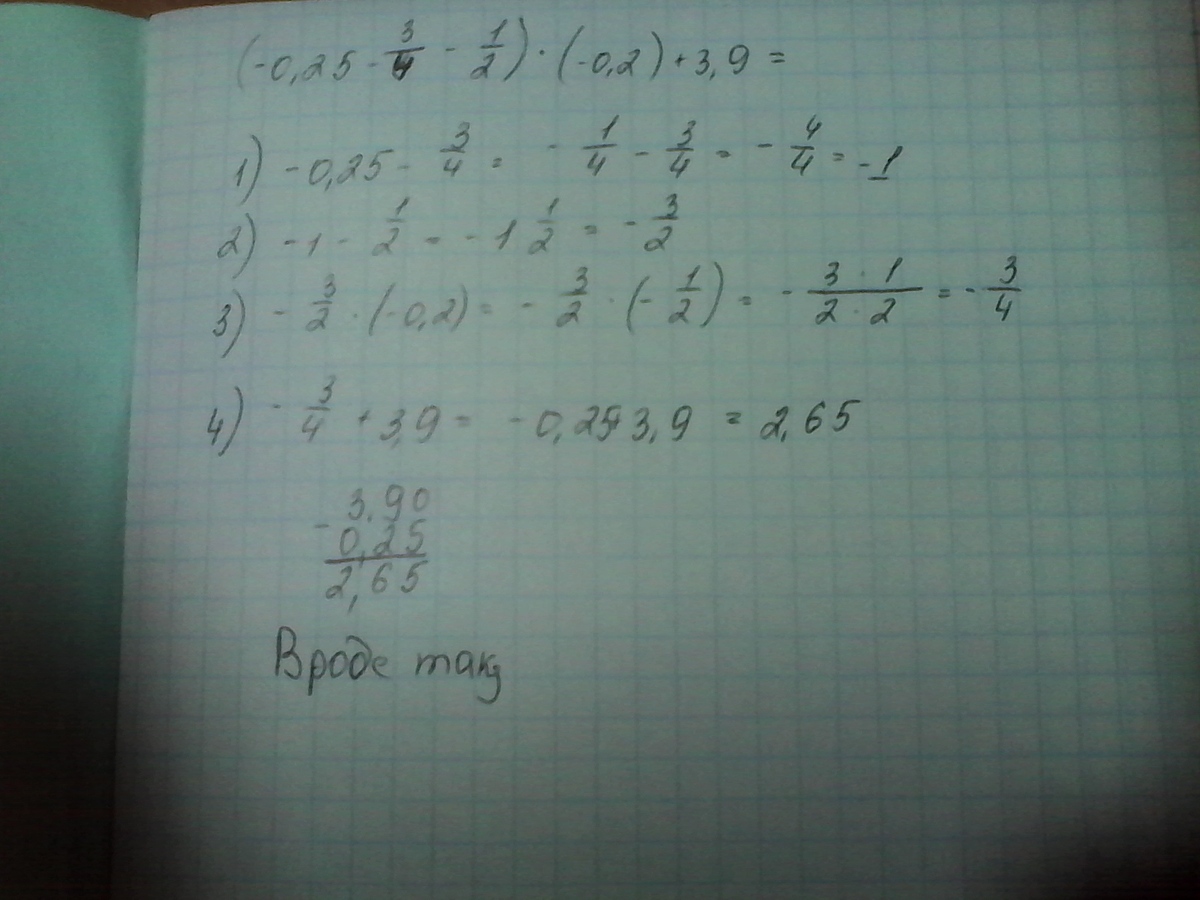 (-0,25 - 3/4 - 1/2) · (-0,2) + 3,9 =
1) -0,25 - 3/4 = - 1/4 - 3/4 = - 4/4 = -1
2) -1 - 1/2 = -1 1/2 = - 3/2
3) - 3/2 · (-0,2) = - 3/2 · (- 1/2) = - 3 · 1/2 · 2 = - 3/4
4) - 3/4 + 3,9 = -0,25+3,9 = 2,65
- 3,90
0,25
2,65
Вроде так